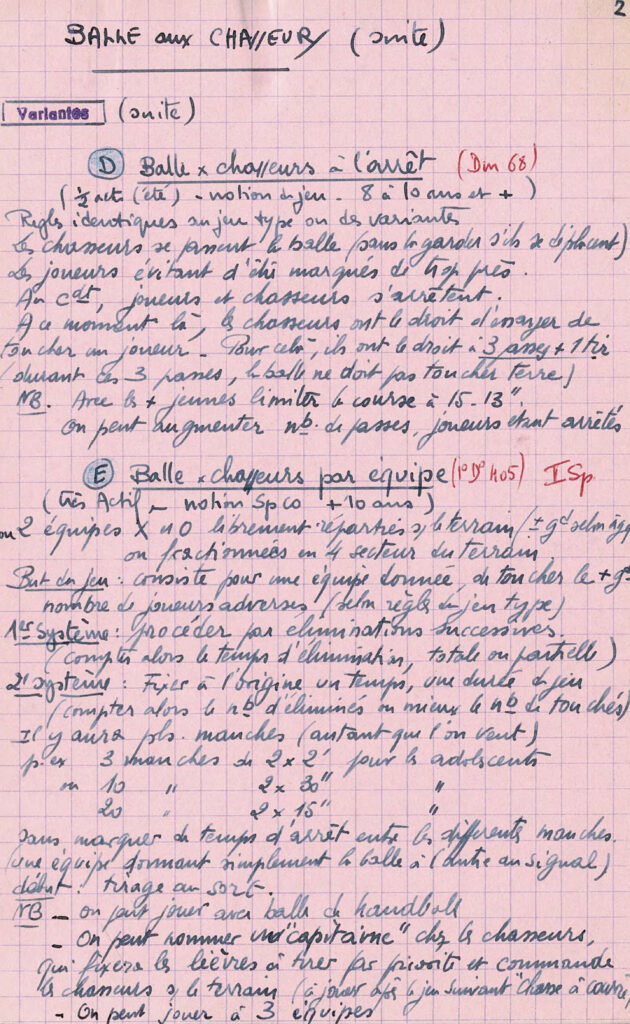 2
BALLE aux CHASSEURS (suite)
Variantes (suite)
D Balle x chasseurs à l'arrêt (Dim 68)
(½ actif (été) - notion du jeu - 8 à 10 ans et +)
Règles identiques au jeu type ou des variantes
Les chasseurs se passent la balle (sans la garder s'ils se déplacent)
Les joueurs évitant d'être marqués de trop près.
Au cat, joueurs et chasseurs s'arrêtent.
A ce moment là, les chasseurs ont le droit d'essayer de
toucher un joueur - Pour celà, ils ont le droit à 3 passes + 1 tir
(durant ces 3 passes, la balle ne doit pas toucher terre)
NB. Avec les + jeunes limiter la course à 15-13".
On peut augmenter nb. de passes, joueurs étant arrêtés
E Balle x chasseurs par équipe I Sp
(très Actif - notion Sp co + 10 ans)
ou 2 équipes X n O librement réparties s/ le terrain (± gd selon âge
ou fractionnées en 4 secteur du terrain
But du jeu : consiste pour une équipe donnée, de toucher le + gd
nombre de joueurs adverses (selon règles du jeu type)
1er Système : procéder par éliminations successives
(compter alors le temps d'élimination, totale ou partielle)
2e système : Fixer à l'origine un temps, une durée du jeu
(compter alors le nb d'éliminés ou mieux le nb de touchés)
Il y aura pls. manches (autant que l'on veut)
p. ex 3 manches de 2 x 2' pour les adolescents
ou 10 " 2 x 30" "
20 " 2 x 15" "
sans marquer de temps d'arrêt entre les différentes manches.
(une équipe donnant simplement la balle à l'autre au signal)
début : tirage au sort.
NB - on peut jouer avec balle de handball
- On peut nommer un "capitaine" chez les chasseurs,
qui fixera les lièvres à tirer par priorité et commande
les chasseurs s/ le terrain (à jouer après le jeu suivant "Chasse à courre,
- On peut jouer à 3 équipes